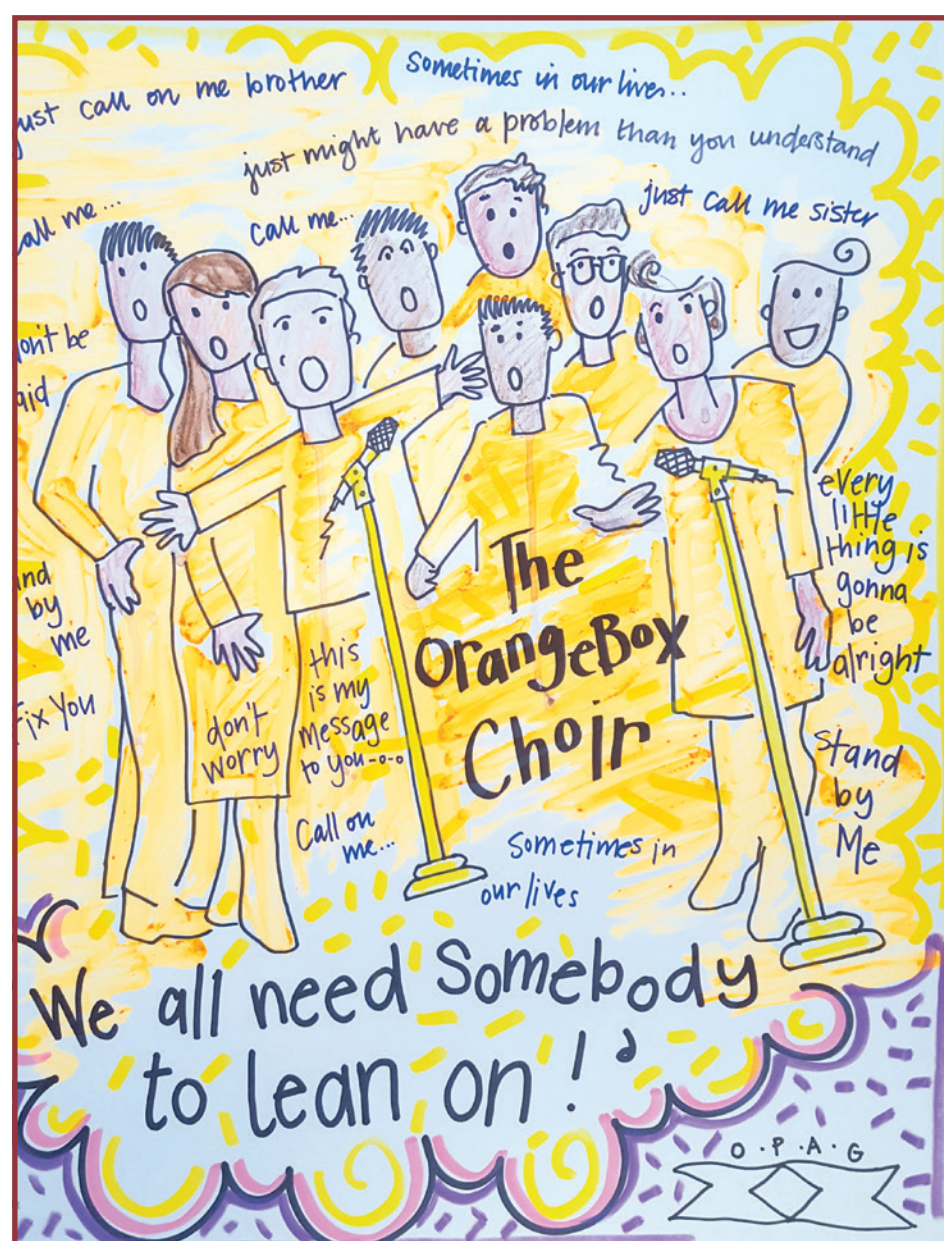 ust call on me brother
Sometimes in our lives..
just might have a problem than you understand
just call me sister
all me...
call me...
on't be
aid
every
little
thing is
gonna
be
alright
nd
by
me
Fix You
don't
worry
this
is my
message
to you-o-o
Call on
me...
The
OrangeBox
Choir
Stand
by
Me
Sometimes in
our lives
We all need Somebody
to lean on!
O.P.A.G